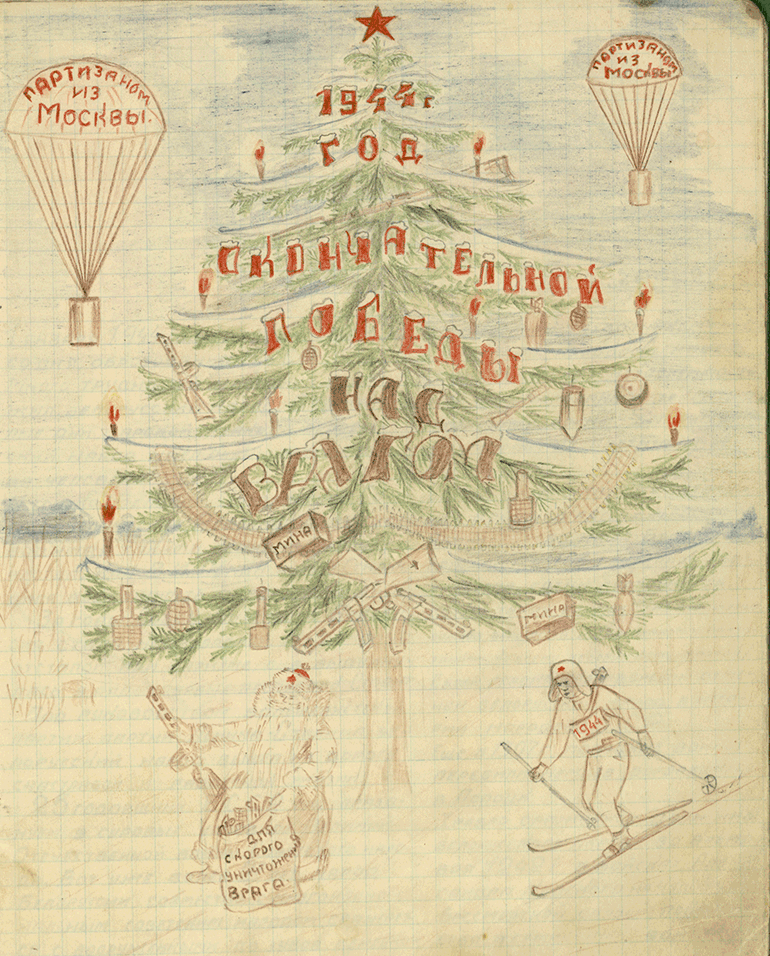 ПАРТИЗАНОМ
ИЗ
МОСКВЫ.
ПАРТИЗАНОМ
ИЗ
МОСКВЫ
1944 г
ГОД
ОКОНЧАТЕЛЬНОЙ
ПОБЕДЫ
НАД
ВРАГОМ
МИНА
МИНА
1944
ДЛЯ
СКОРОГО
УНИЧТОЖЕНИЯ
ВРАГА.